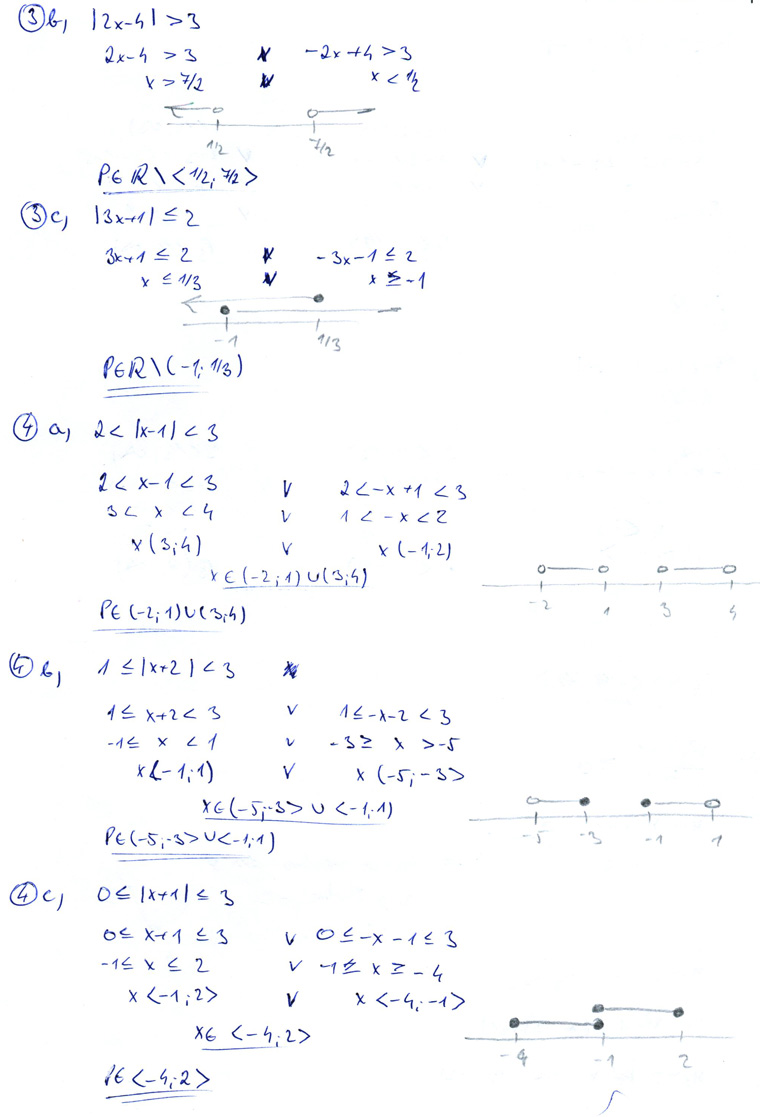 ③ b, |2x-4| > 3
2x-4 > 3 ∨ -2x+4 > 3
x > 7/2 ∨ x < 1/2
1/2 7/2
P∈ℝ\<1/2; 7/2>
③ c, |3x+1| ≤ 2
3x+1 ≤ 2 ∨ -3x-1 ≤ 2
x ≤ 1/3 ∨ x ≥ -1
-1 1/3
P∈ℝ\(-1; 1/3)
④ a, 2 < |x-1| < 3
2 < x-1 < 3 ∨ 2 < -x+1 < 3
3 < x < 4 ∨ 1 < -x < 2
x(3;4) ∨ x(-1;2)
x∈(-2;1)∪(3;4)
-2 1 3 4
P∈(-2;1)∪(3;4)
④ b, 1 ≤ |x+2| < 3
1 ≤ x+2 < 3 ∨ 1 ≤ -x-2 < 3
-1 ≤ x < 1 ∨ -3 ≥ x > -5
x<-1;1) ∨ x(-5;-3>
x∈(-5;-3> ∪ <-1;1)
-5 -3 -1 1
P∈(-5;-3>∪<-1;1)
④ c, 0 ≤ |x+1| ≤ 3
0 ≤ x+1 ≤ 3 ∨ 0 ≤ -x-1 ≤ 3
-1 ≤ x ≤ 2 ∨ -1 ≥ x ≥ -4
x<-1;2> ∨ x<-4;-1>
x∈<-4;2>
-4 -1 2
P∈<-4;2>